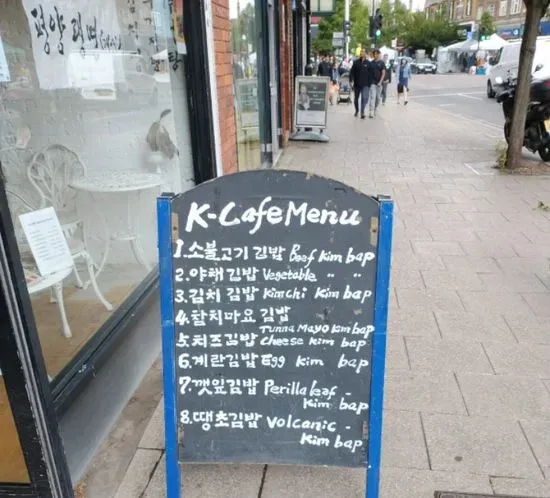 평양 랭면
K-Cafe Menu
1.소불고기 김밥 Beef Kim bap
2.야채 김밥 Vegetable " "
3.김치 김밥 Kimchi Kim bap
4.참치마요 김밥
Tunna Mayo Kim bap
5.치즈김밥 Cheese Kim bap
6.계란김밥 Egg Kim bap
7.깻잎김밥 Perilla leaf -
Kim bap
8.땡초김밥 Volcanic -
Kim bap